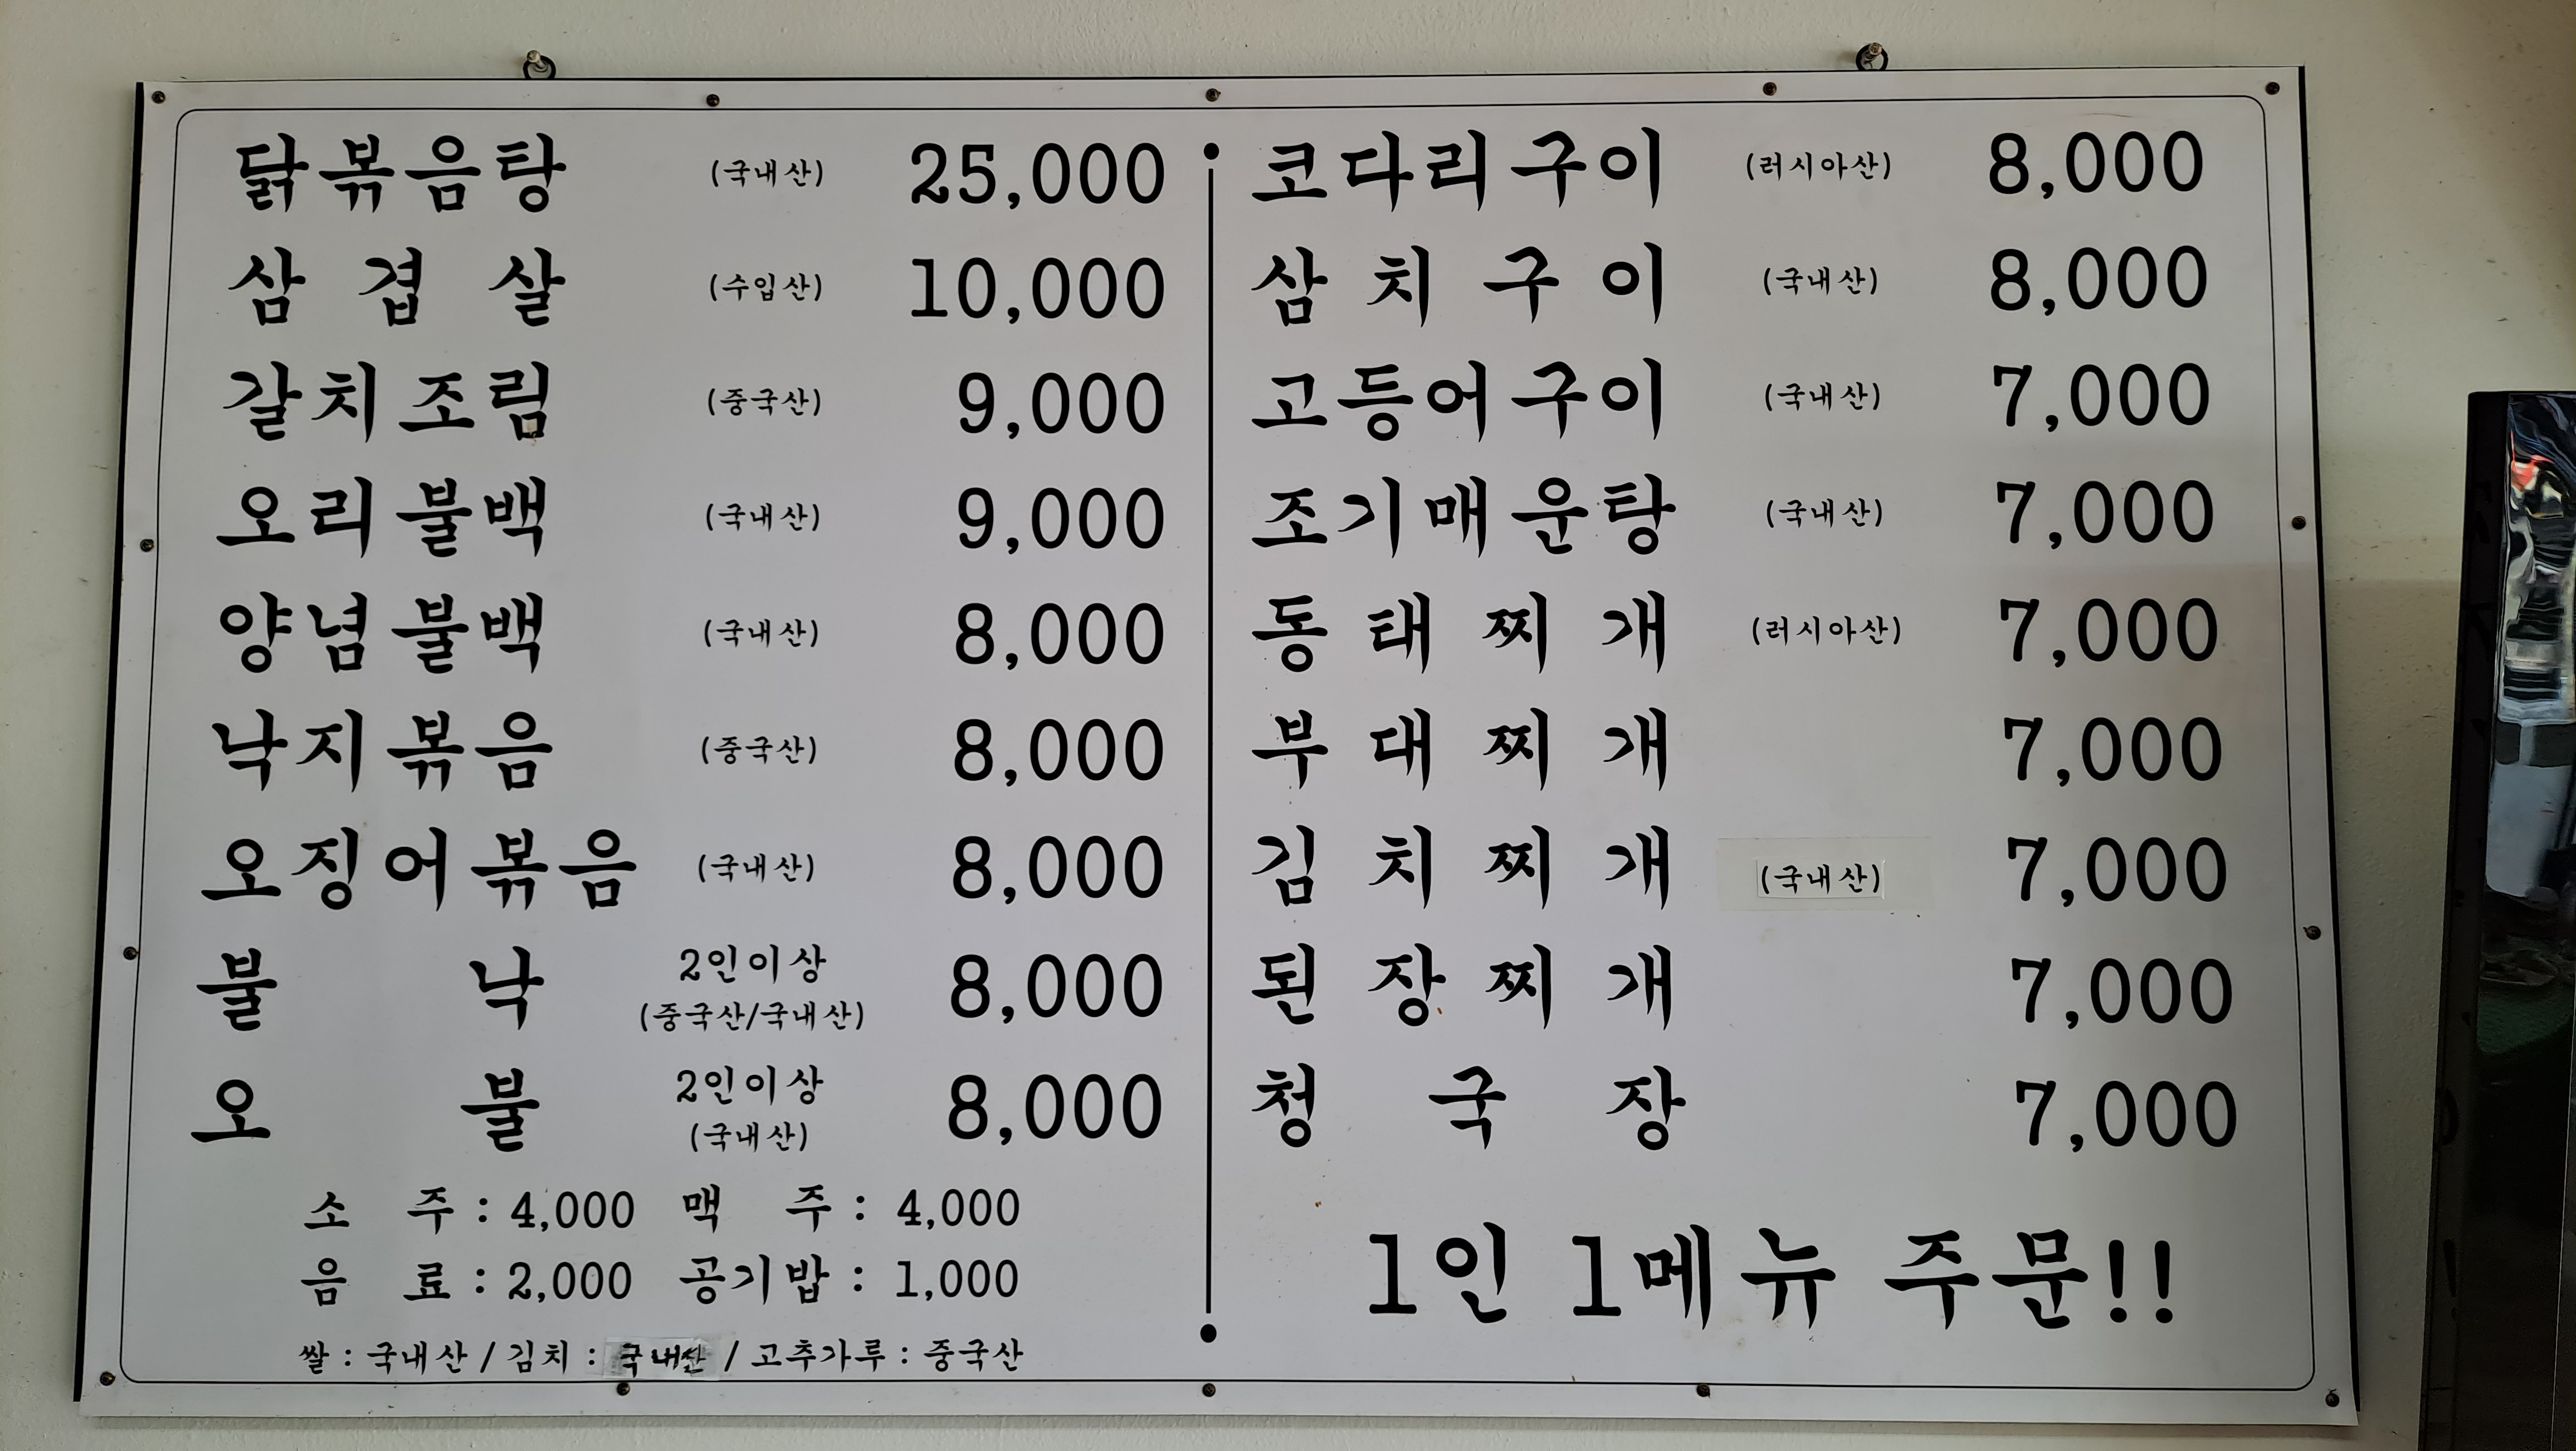 닭볶음탕 (국내산) 25,000
삼겹살 (수입산) 10,000
갈치조림 (중국산) 9,000
오리불백 (국내산) 9,000
양념불백 (국내산) 8,000
낙지볶음 (중국산) 8,000
오징어볶음 (국내산) 8,000
불낙 2인이상 (중국산/국내산) 8,000
오불 2인이상 (국내산) 8,000
소주 : 4,000 맥주 : 4,000
음료 : 2,000 공기밥 : 1,000
쌀 : 국내산 / 김치 : 국내산 / 고추가루 : 중국산
코다리구이 (러시아산) 8,000
삼치구이 (국내산) 8,000
고등어구이 (국내산) 7,000
조기매운탕 (국내산) 7,000
동태찌개 (러시아산) 7,000
부대찌개 7,000
김치찌개 (국내산) 7,000
된장찌개 7,000
청국장 7,000
1인 1메뉴 주문!!